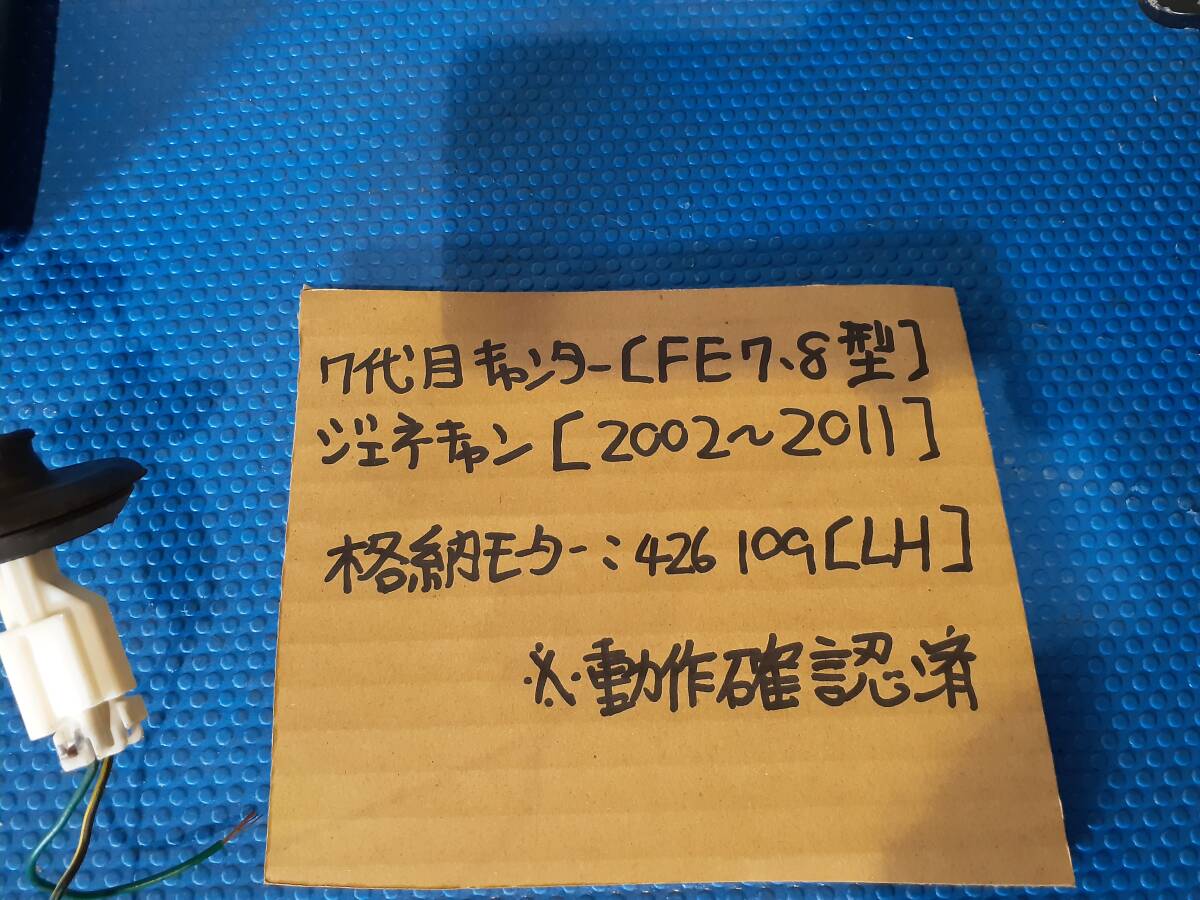 7代目キャンター[FE7、8型]
ジェネキャン[2002〜2011]
格納モーター:426 109[LH]
※動作確認済